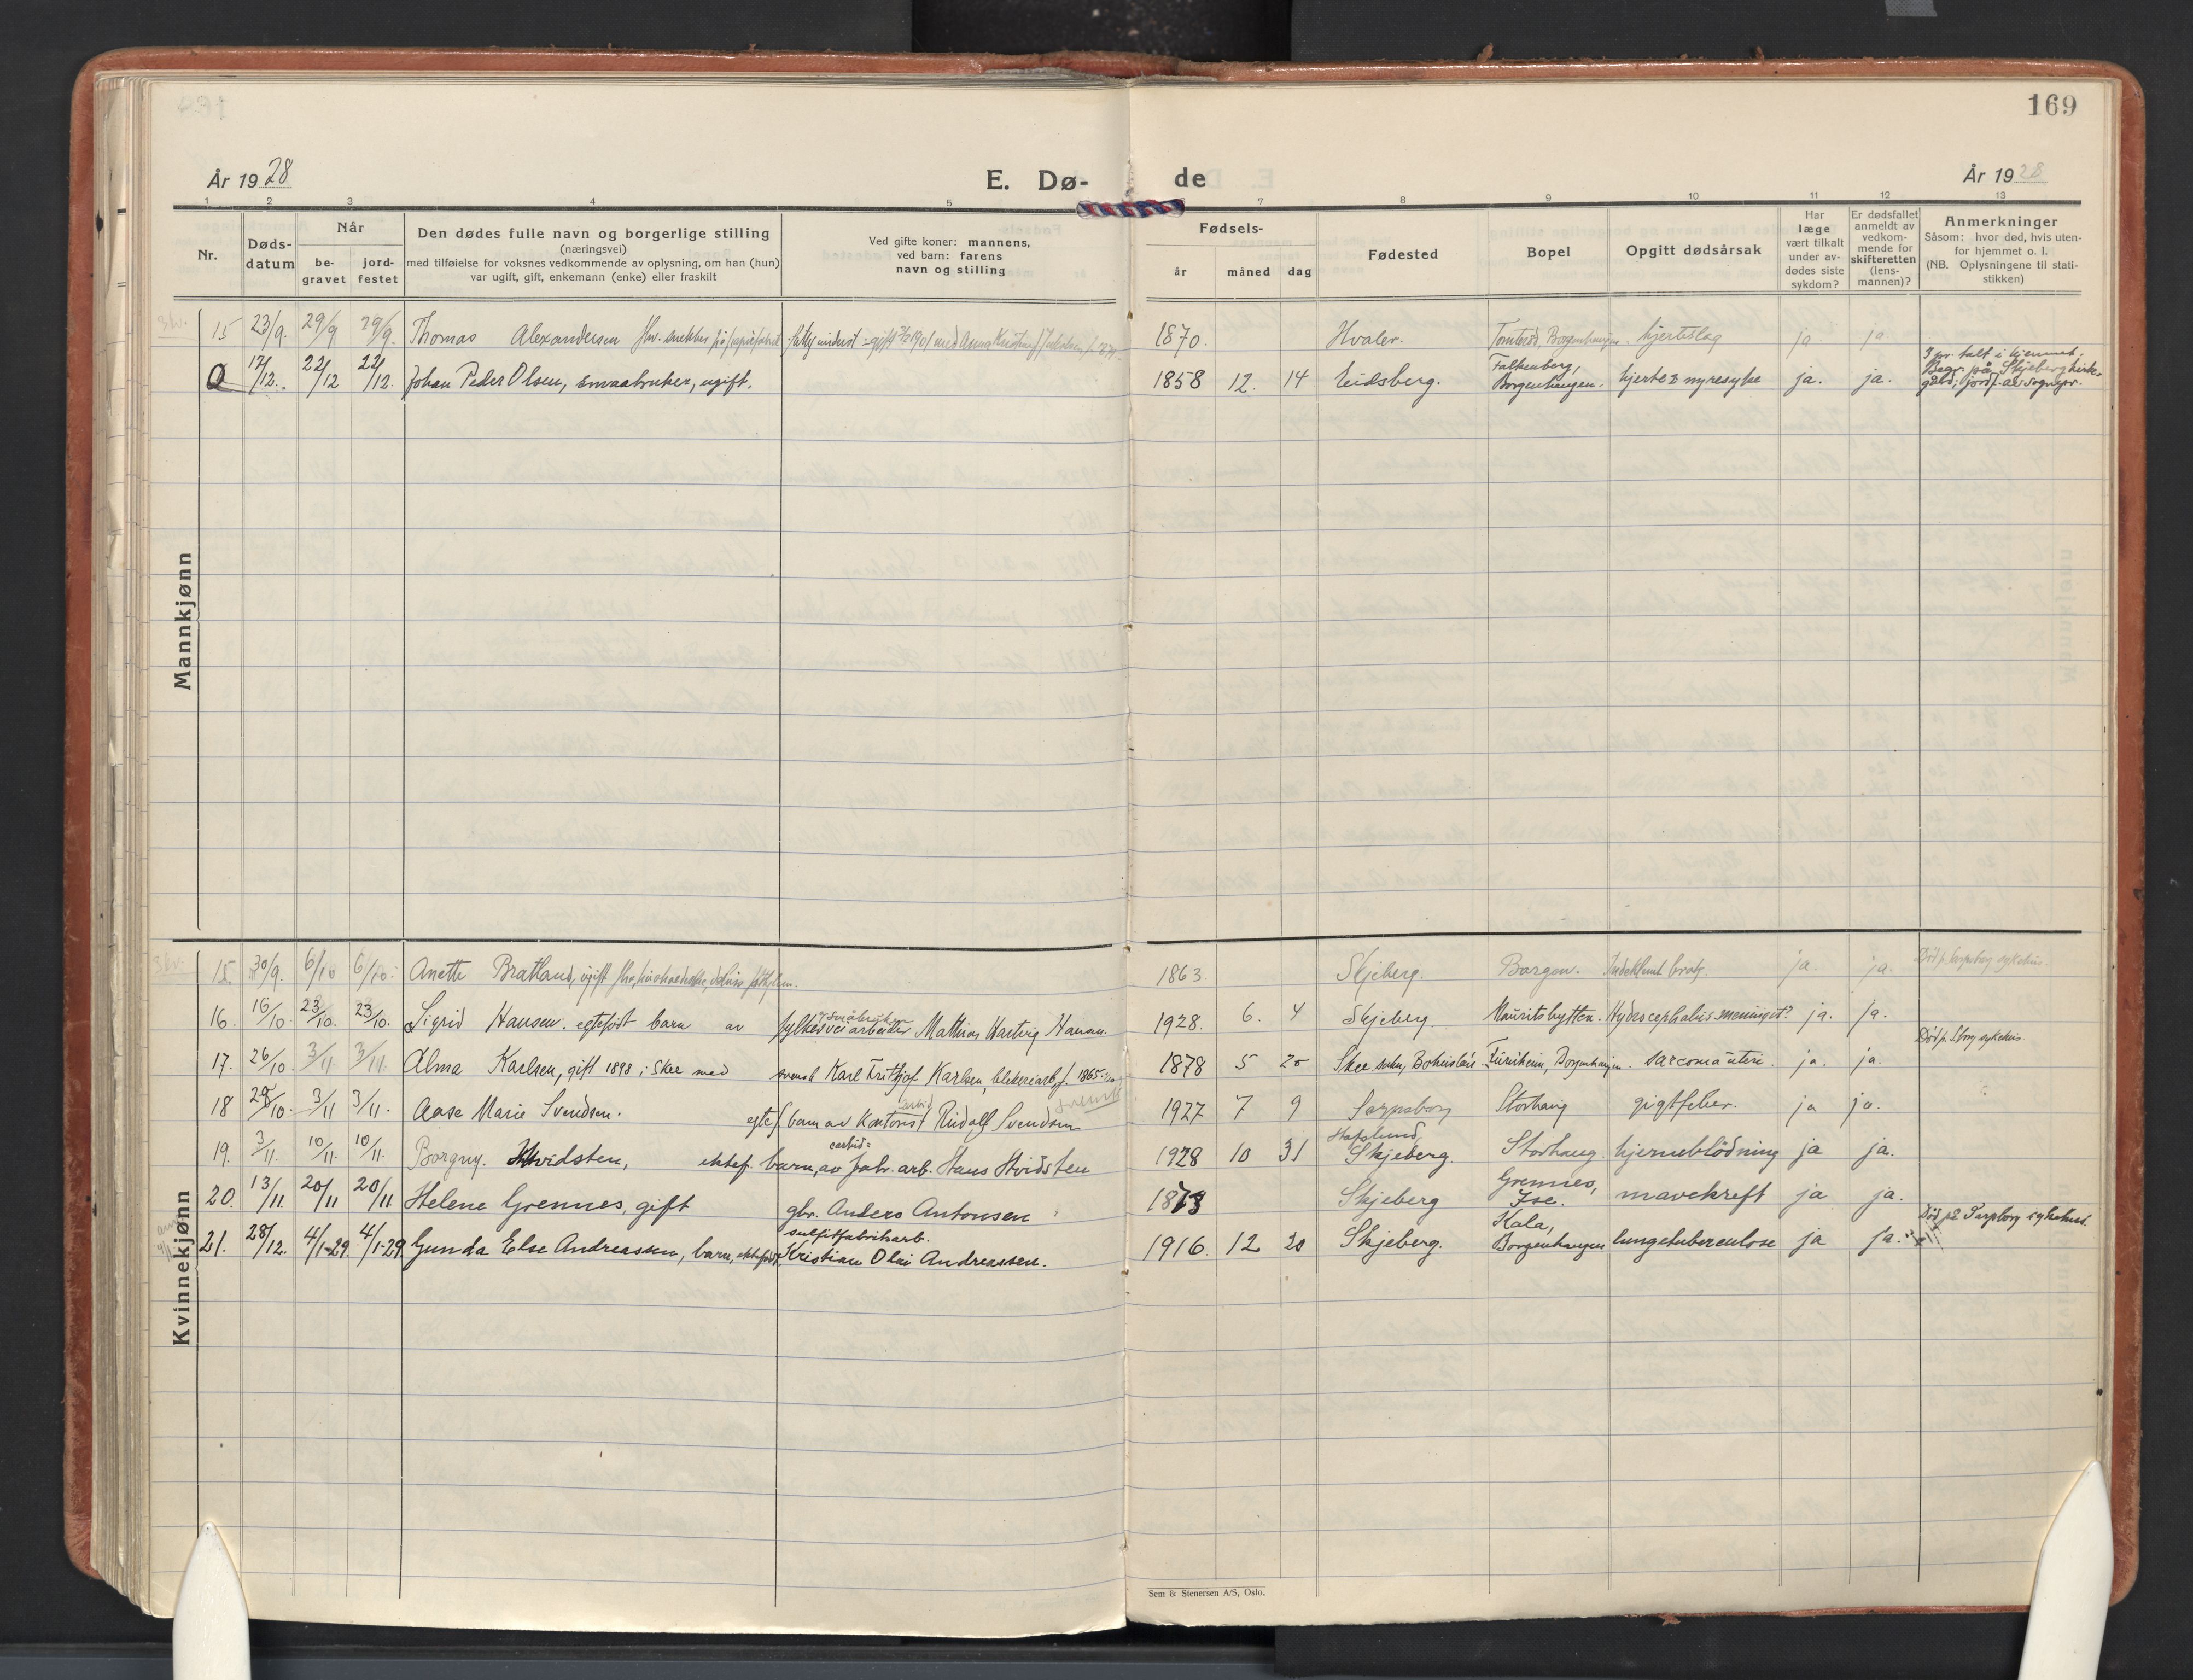 169
År 1928
E. Dø- de
År 1928
1 2 3 4 5 7 8 9 10 11 12 13
Nr.
Døds-
datum
Når
be-
gravet
jord-
festet
Den dødes fulle navn og borgerlige stilling
(næringsvei)
med tilføielse for voksnes vedkommende av oplysning, om han (hun)
var ugift, gift, enkemann (enke) eller fraskilt
Ved gifte koner: mannens,
ved barn: farens
navn og stilling
Fødsels-
år måned dag
Fødested
Bopel
Opgitt dødsårsak
Har
læge
vært tilkalt
under av-
dødes siste
sykdom?
Er dødsfallet
anmeldt av
vedkom-
mende for
skifteretten
(lens-
mannen)?
Anmerkninger
Såsom: hvor død, hvis uten-
for hjemmet o. l.
(NB. Oplysningene til stati-
stikken)
Mannkjønn
15 23/9. 29/9 29/9. Thomas Alexandersen fhv. snekker 1870. Hvaler. hjerteslag ja ja.
17/12. 22/12 22/12. Johan Peder Olsen, smaabruker, ugift. 1858 12. 14 Eidsberg. Falkenberg, Borgenhaugen. hjerte & nyresyke ja. ja.
Begr. på Skjeberg kirke-
gård; jordf. av sognepr.
Kvinnekjønn
15. 30/9. 6/10 6/10. Anette Bratland, ugift 1863. Skjeberg. Borgen. ja. ja. Død p. Sarpsborg sykehus.
16. 16/10. 23/10. 23/10. Sigrid Hansen. egtefødt barn av fylkesveiarbeider Mathias Hartvig Hansen. 1928. 6. 4 Skjeberg. Mauritshytten. Hydrocephalus meningit? ja. ja.
17. 26/10 3/11 3/11. Alma Karlsen, gift 1898 i Skee med svensk Karl Fritjof Karlsen, blekeriarb. f. 1865 1878 5 20 Skee sokn, Bohuslän. Furuheim, Borgenhaugen. sarcoma uteri. ja. ja. Død p. Sbrg sykehus.
svensk
18 28/10. 3/11 3/11. Aase Marie Svendsen. egtef. barn av Kontorist Rudolf Svendsen 1927 7 9 Sarpsborg Storhaug gigtfeber. ja ja.
19. 3/11. 10/11. 10/11. Borgny. Hvidsten, ektef. barn, av carbid= fabr. arb. Hans Hvidsten 1928 10 31 Hafslund, Skjeberg. Storhaug. hjerneblödning ja ja.
20. 13/11. 20/11 20/11 Helene Grennes, gift gbr. Anders Antonsen 1873 Skjeberg Grennes, Ise. mavekreft ja ja.
21. 28/12. 4/1-29. 4/1-29. Gunda Else Andreassen, barn, ektefødt sulfitfabrikarb. Kristian Olai Andreassen. 1916. 12 20 Skjeberg. Kala, Borgenhaugen lungetuberculose ja ja. Død på Sarpborg sykehus.
Sem & Stenersen A/S, Oslo.